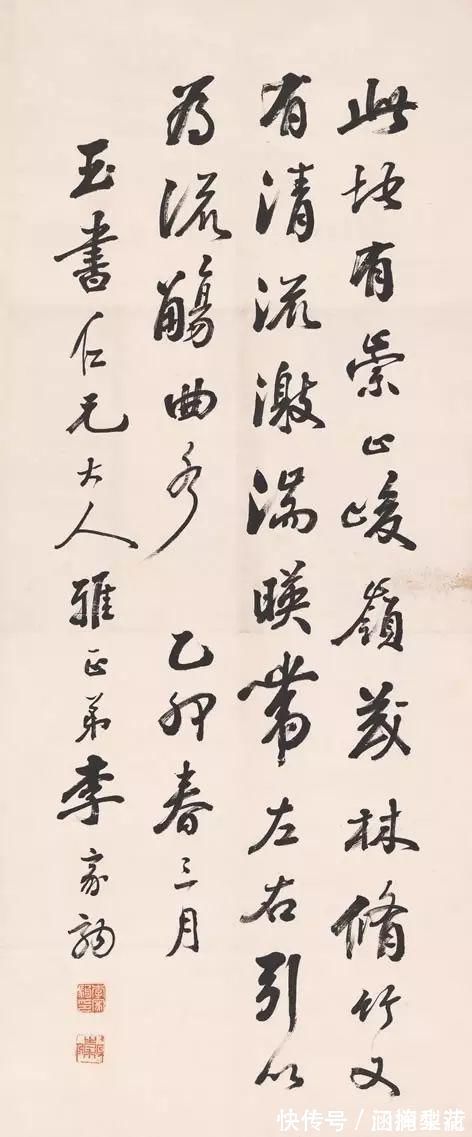 此地有崇山峻嶺茂林脩竹又
有清流激湍暎帶左右引以
為流觴曲水 乙卯春三月
玉書仁兄大人雅正弟李家駒
快传号／涵